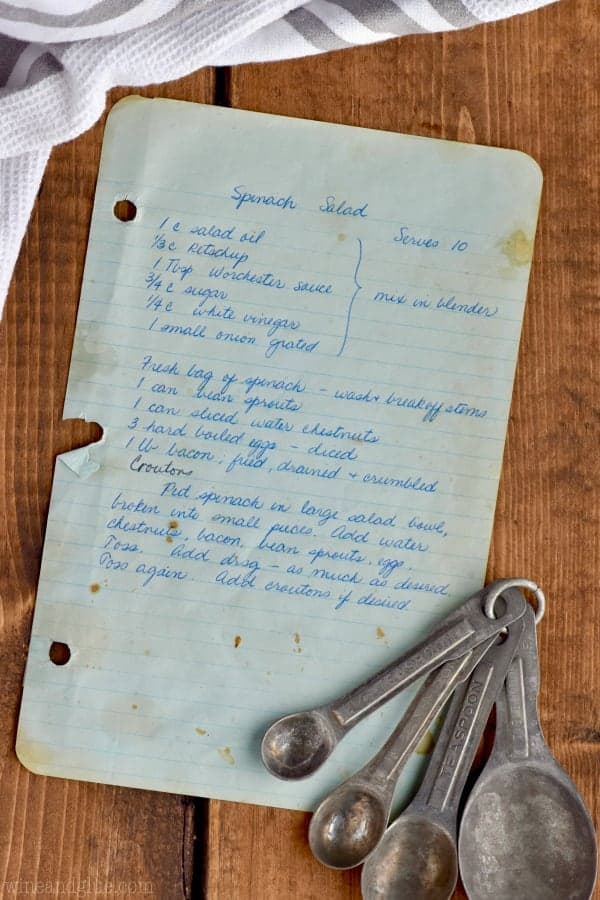 Spinach Salad
Serves 10
1 c salad oil
1/3 c Ketschup
1 Tbsp Worchester sauce
3/4 c sugar
1/4 c white vinegar
1 small onion grated
mix in blender
Fresh bag of spinach - wash + break off stems
1 can bean sprouts
1 can sliced water chestnuts
3 hard boiled eggs - diced
1 lb bacon, fried, drained + crumbled
Croutons
Put spinach in large salad bowl,
broken into small pieces. Add water
chestnuts, bacon, bean sprouts, eggs.
Toss. Add drsg - as much as desired.
Toss again. Add croutons if desired.
TEASPOON
wineandglue.com